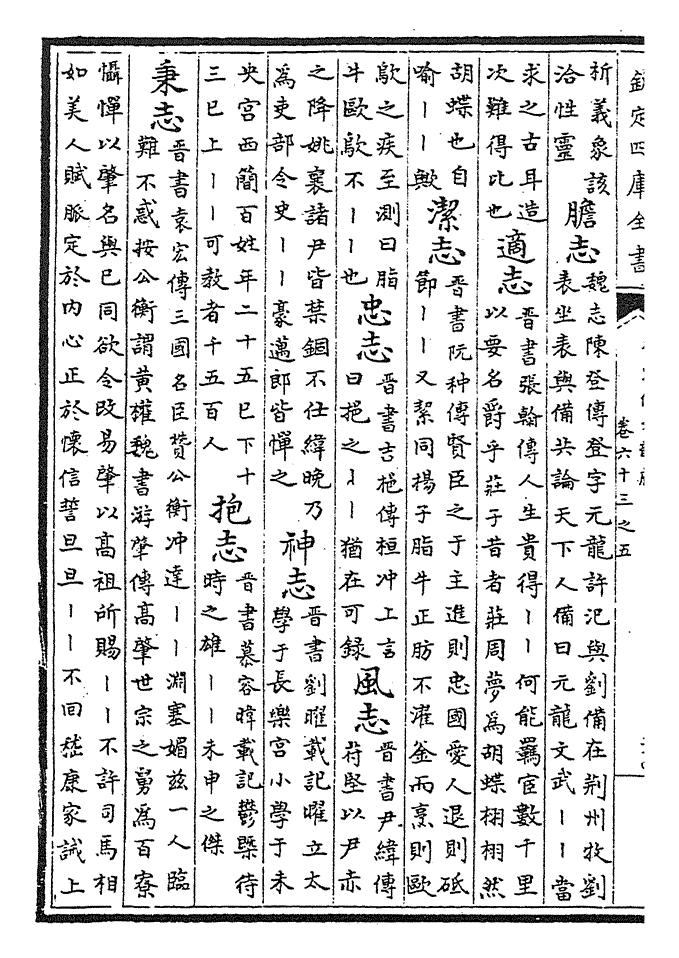 欽定四庫全書
卷六十三之五
析義象該
洽性靈
膽志
魏志陳登傳登字元龍許汜與劉備在荆州牧劉
表坐表與備共論天下人備曰元龍文武丨丨當
求之古耳造
次難得比也
適志
晉書張翰傳人生貴得丨丨何能羈宦數千里
以要名爵乎莊子昔者莊周夢為胡蝶栩栩然
胡蝶也自
喻丨丨歟
潔志
晉書阮种傳賢臣之于主進則忠國愛人退則砥
節丨丨又絜同揚子脂牛正肪不濯釜而烹則歐
歍之疾至測曰脂
牛歐歍不丨丨也
忠志
晉書吉挹傳桓冲上言
曰挹之丨丨猶在可録
風志
晉書尹緯傳
苻堅以尹赤
之降姚襄諸尹皆禁錮不仕緯晚乃
為吏部令史丨丨豪邁郎皆憚之
神志
晉書劉曜載記曜立太
學于長樂宮小學于未
央宮西簡百姓年二十五已下十
三已上丨丨可教者千五百人
抱志
晉書慕容暐載記鬱槩待
時之雄丨丨未申之傑
秉志
晉書袁宏傳三國名臣贊公衡冲達丨丨淵塞媚兹一人臨
難不惑按公衡謂黄權魏書游肇傳高肇世宗之舅為百寮
懾憚以肇名與已同欲令改易肇以高祖所賜丨丨不許司馬相
如美人賦脈定於内心正於懷信誓旦旦丨丨不回嵇康家誡上